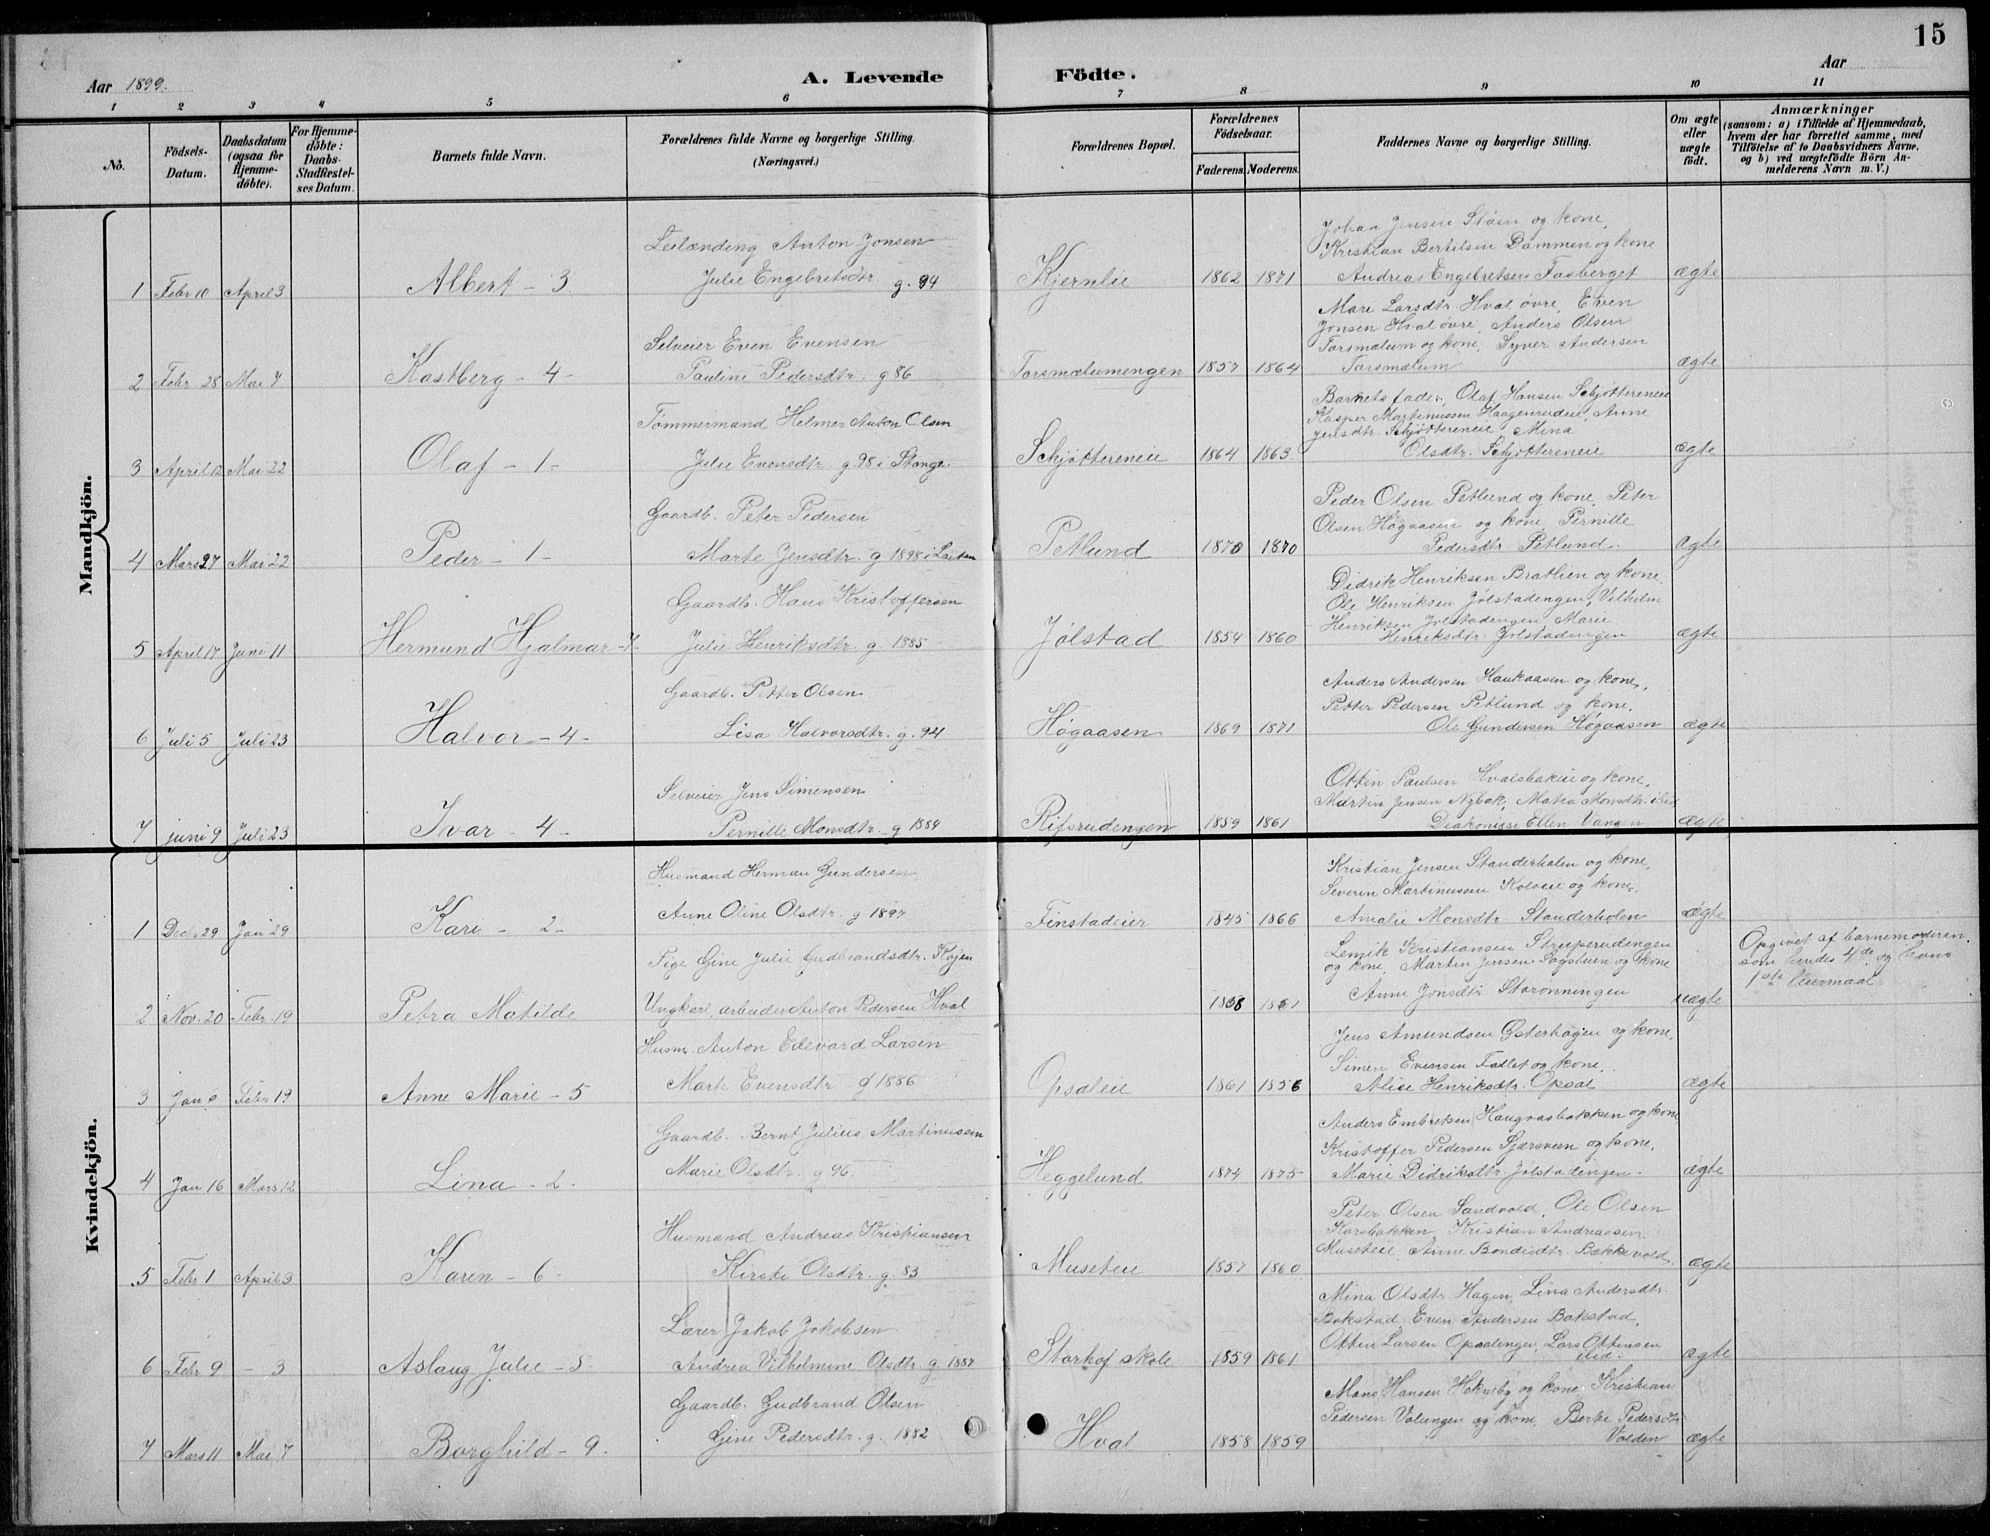 15
Aar 1899. A. Levende Födte. Aar
1 2 3 4 5 6 7 8 9 10 11
Nô. Födsels-Datum. Daabsdatum (ogsaa for Hjemme-döbte). For Hjemme-döbte: Daabs-Stadfæstel-ses Datum. Barnets fulde Navn. Forældrenes fulde Navne og borgerlige Stilling. (Næringsvei.) Forældrenes Bopæl. Forældrenes Födselsaar. Faderens. Moderens. Faddernes Navne og borgerlige Stilling. Om ægte eller uægte födt. Anmærkninger (saasom: a) i Tilfælde af Hjemmedaab, hvem der har forrettet samme, med Tilföielse af to Daabsvidners Navne, og b) ved uægtefödte Börn An-melderens Navn m. V.)
Mandkjön.
Leilænding Anton Jonsen
Johan Jensen Stöen og kone,
Kristian Bertilsen Dammen og kone
1 Febr 10 April 3 Albert - 3 Julie Engebretsdtr g. 94 Kjernlie 1862 1871 Andreas Engebretsen Fasberget ægte
Selveier Even Evensen
Mari Larsdtr. Hval övre, Even
Jonsen Hval övre, Anders Olsen
Torsmælum og kone, Syver Andersen
2 Febr. 28 Mai 7 Kastberg - 4 - Pauline Pedersdtr. g 86 Torsmælumengen 1857 1864 Torsmælum ægte
Tømmermand Helmer Anton Olsen
Barnets fader, Olaf Hansen Schjøttereneie
Kasper Martinussen Haagenrudeie, Anne
Jensdtr. Schjøttereneie Mina
3 April 12 Mai 22 Olaf - 1 - Julie Evensdtr. g. 98 i Stange. Schjøttereneie 1864 1863 Olsdtr. Schjøttereneie ægte
Gaardb. Peter Pedersen
Peder Olsen Petlund og kone, Peter
Olsen Høgaasen og kone, Pernille
4 Mars 27 Mai 22 Peder - 1 - Marte Jensdtr. g 1898 i Løiten Petlund 1870 1870 Pedersdtr. Petlund. ægte
Gaardb. Hans Kristoffersen
Didrik Henriksen Brathen og kone.
Ole Henriksen Jølstadengen, Vilhelm
Henriksen Jølstadengen, Marie
5 April 17 Juni 11 Hermund Hjalmar - 7 - Julie Henriksdtr. g. 1885 Jølstad 1854 1860 Henriksdtr. Jølstadengen ægte
Gaardb. Petter Olsen
Anders Andersen Haukaasen og kone,
Petter Pedersen Petlund og kone,
6 Juli 5 Juli 23 Halvor - 4 - Lisa Halvorsdtr. g. 94 Høgaasen 1869 1871 Ole Gundersen Høgaasen ægte
Selveier Jens Simensen
Ottin Paulsen Hvalsbakeie og kone,
Martin Jensen Nybak, Matea Monsdtr. ibid
7 juni 9 Juli 23 Ivar - 4 - Pernille Monsdtr. g 1884 Rifsrudengen 1859 1861 Diakonisse Ellen Vangen ægte
Kvindekjön.
Husmand Herman Gundersen
Kristian Jensen Standerholen og kone,
Severin Martinussen Kolveie og kone,
1 Dec. 29 Jan 29 Kari - 2 - Anne Oline Olsdtr. g 1897 Finstadeier 1845 1866 Amalie Monsdtr Standerholen ægte
Pige Gine Julie Gudbrandsdtr. Røjen
Lemik Kristiansen Struperudengen
og kone, Martin Jensen Sagstuen og kone
Opgivet af barnemoderen
som hendes 4de og hans
1ste leiermaal
2 Nov. 20 Febr. 19 Petra Matilde Ungkarl, arbeider Anton Pedersen Hval 1868 1861 Anne Jonsdtr. Storonningen uægte
Husm. Anton Edevard Larsen
Jens Amundsen Østerhagen og kone,
Simen Evensen Fallet og kone,
3 Jan 6 Febr 19 Anne Marie - 5 Marte Evensdtr g 1886 Opsaleie 1861 1856 Alise Henriksdtr. Opsal ægte
Gaardb. Bernt Julius Martinussen
Anders Embretsen Haugvasbakken og kone
Kristoffer Pedersen Sjørsveen og kone,
4 Jan 16 Mars 12 Lina - 2 - Marie Olsdtr. g 96. Heggelund 1874 1875 Marie Didriksdtr Jølstadengen. ægte
Husmand Andreas Kristiansen
Peter Olsen Sandvold, Ole Olsen
Korsbakken, Kristian Andreasen
Museteie Anne Bondisdtr. Bakkevold.
5 Febr 1 April 3 Karen - 6 - Kirsti Olsdtr. g. 83 Museteie 1857 1860 ægte
Lærer Jakob Jakobsen
Mina Olsdtr. Hagen, Lina Andersdtr.
Bokstad Even Andersen Bakstad,
Otten Larsen Opsalengen, Lars Ottensen
ibid.
6 Febr 9 - 3 Aslaug Julie - 5 - Andrea Vilhelmine Olsdtr. g 1887 Storhof skole 1859 1861 ægte
Gaardb. Gudbrand Olsen
Mons Hansen Hekneby og kone, Kristian
Pedersen Volungen og kone, Berte Pedersdtr
7 Mars 11 Mai 7 Borghild - 9 - Gine Pedersdtr. g. 1882 Hval 1858 1859 Volden ægte